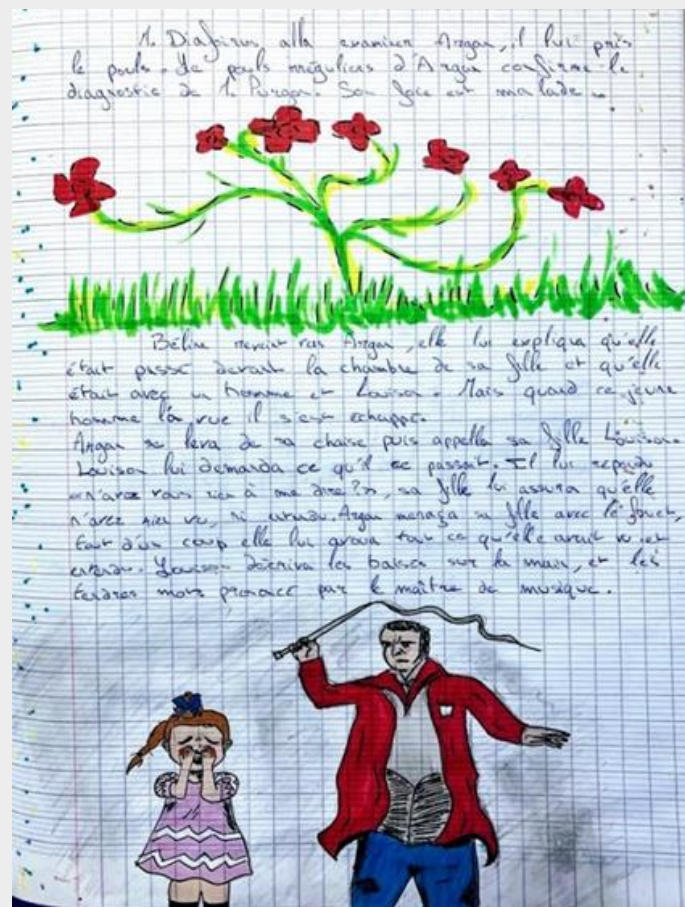 M. Diafirus alla examiner Argan, il lui pris
le pouls. Le pouls irrégulier d'Argan confirme le
diagnostic de M. Purgon. Son foie est malade.
Béline revient vers Argan, elle lui expliqua qu'elle
était passé devant la chambre de sa fille et qu'elle
était avec un homme et Louison. Mais quand ce jeune
homme l'a vue il s'est échappé.
Argan se leva de sa chaise puis appella sa fille Louison.
Louison lui demanda ce qu'il ce passait. Il lui
«n'avez vous rien à me dire?», sa fille lui assura qu'elle
n'avez rien vu, ni entendu. Argan menaça sa fille avec le fouet,
tout d'un coup elle lui avoua tout ce qu'elle avait vu et
entendu. Louison décriva les baisés sur la main, et les
tendres mots prononcé par le maître de musique.